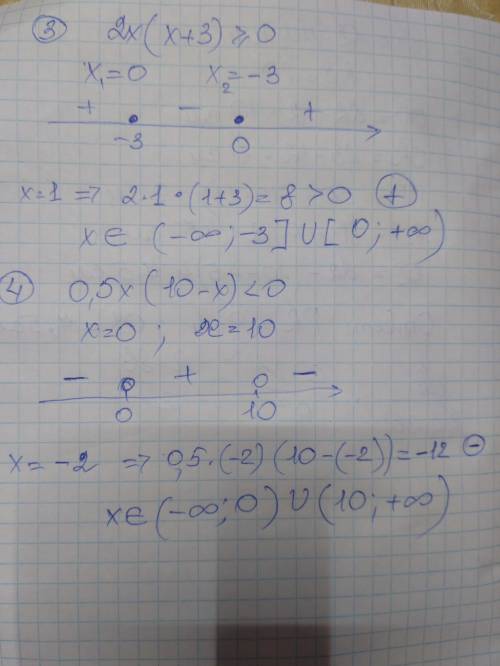 ③ 2x(x+3)⩾0
x₁=0 x₂=-3
+ - +
-3 0
x=1 => 2·1·(1+3)=8>0 ⊕
x∈ (-∞;-3]∪[0;+∞)
④ 0,5x(10-x)<0
x=0; x=10
- + -
0 10
x=-2 => 0,5·(-2)(10-(-2))=-12 ⊖
x∈(-∞;0)∪(10;+∞)